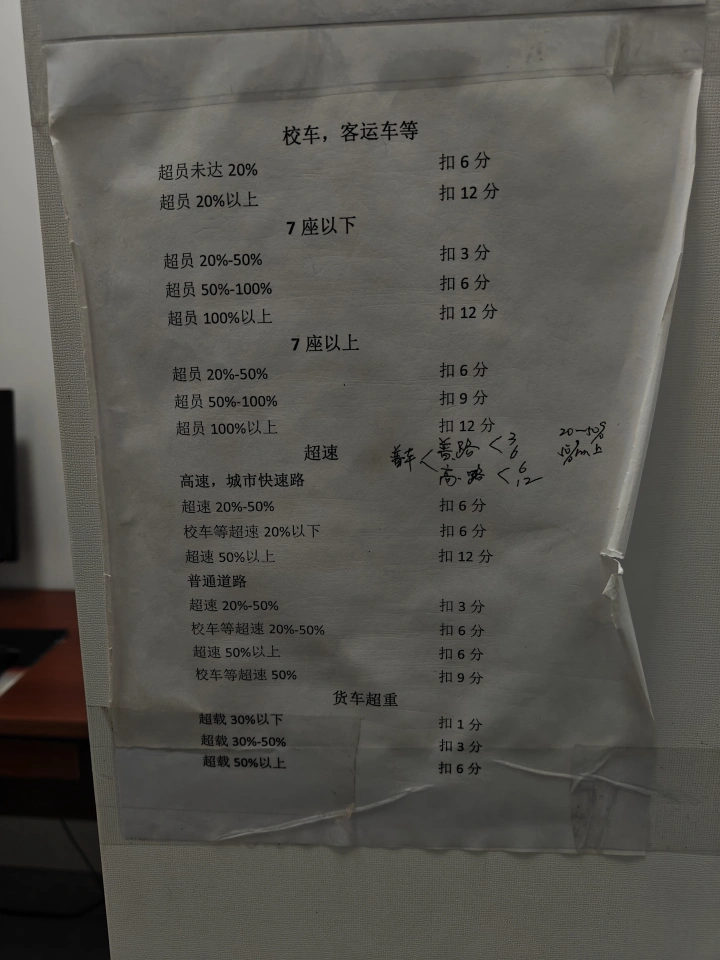 校车，客运车等
超员未达 20% 扣 6 分
超员 20%以上 扣 12 分
7 座以下
超员 20%-50% 扣 3 分
超员 50%-100% 扣 6 分
超员 100%以上 扣 12 分
7 座以上
超员 20%-50% 扣 6 分
超员 50%-100% 扣 9 分
超员 100%以上 扣 12 分
超速 普车 < 普路 < 3 6 20-50%
高路 < 6 12 50%以上
高速，城市快速路
超速 20%-50% 扣 6 分
校车等超速 20%以下 扣 6 分
超速 50%以上 扣 12 分
普通道路
超速 20%-50% 扣 3 分
校车等超速 20%-50% 扣 6 分
超速 50%以上 扣 6 分
校车等超速 50% 扣 9 分
货车超重
超载 30%以下 扣 1 分
超载 30%-50% 扣 3 分
超载 50%以上 扣 6 分